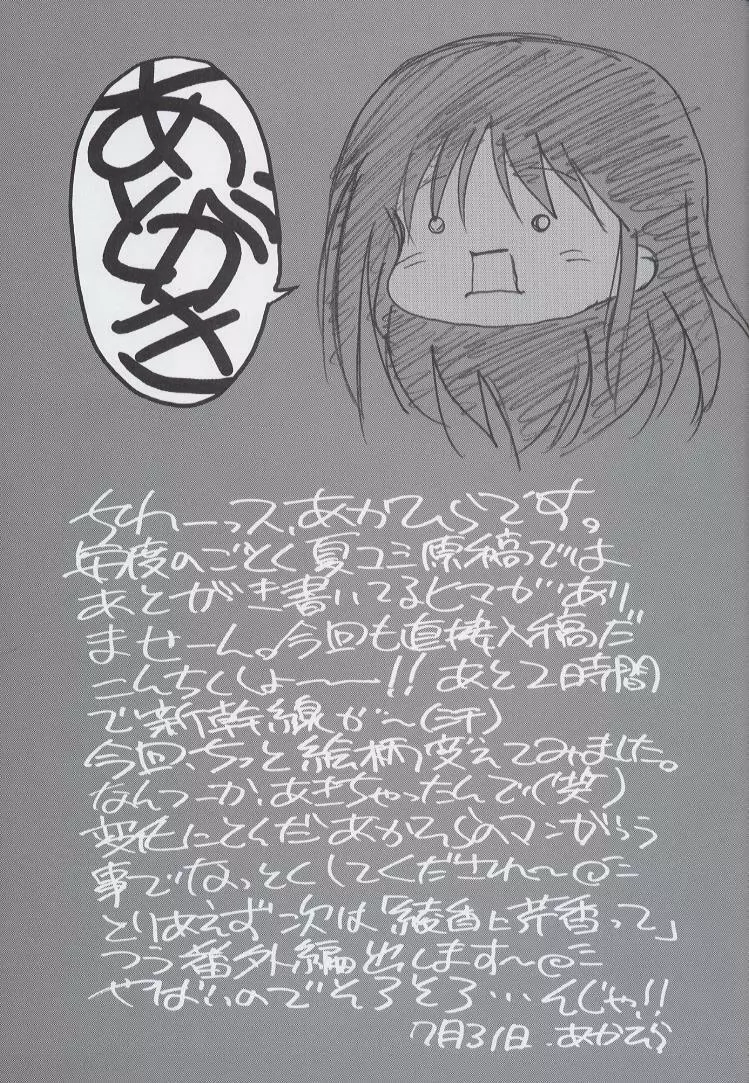 あとがき
ちわーっス、あかひらです。
毎度のごとく夏コミ原稿では
あとがき書いてるヒマがあり
ませーん。今回も直接入稿だ
こんちくしょーー!! あと2時間
で新幹線が~(汗)
今回、ちっと絵柄変えてみました。
なんつーか、あきちゃったんで(笑)
変化にとんだあかひらのマンガっつう
事でなっとくしてくだされ~@ミ
とりあえず次は「綾香と芹香って」
つう番外編出します~@ミ
やばいのでそろそろ…んじゃ!!
7月31日.あかひら